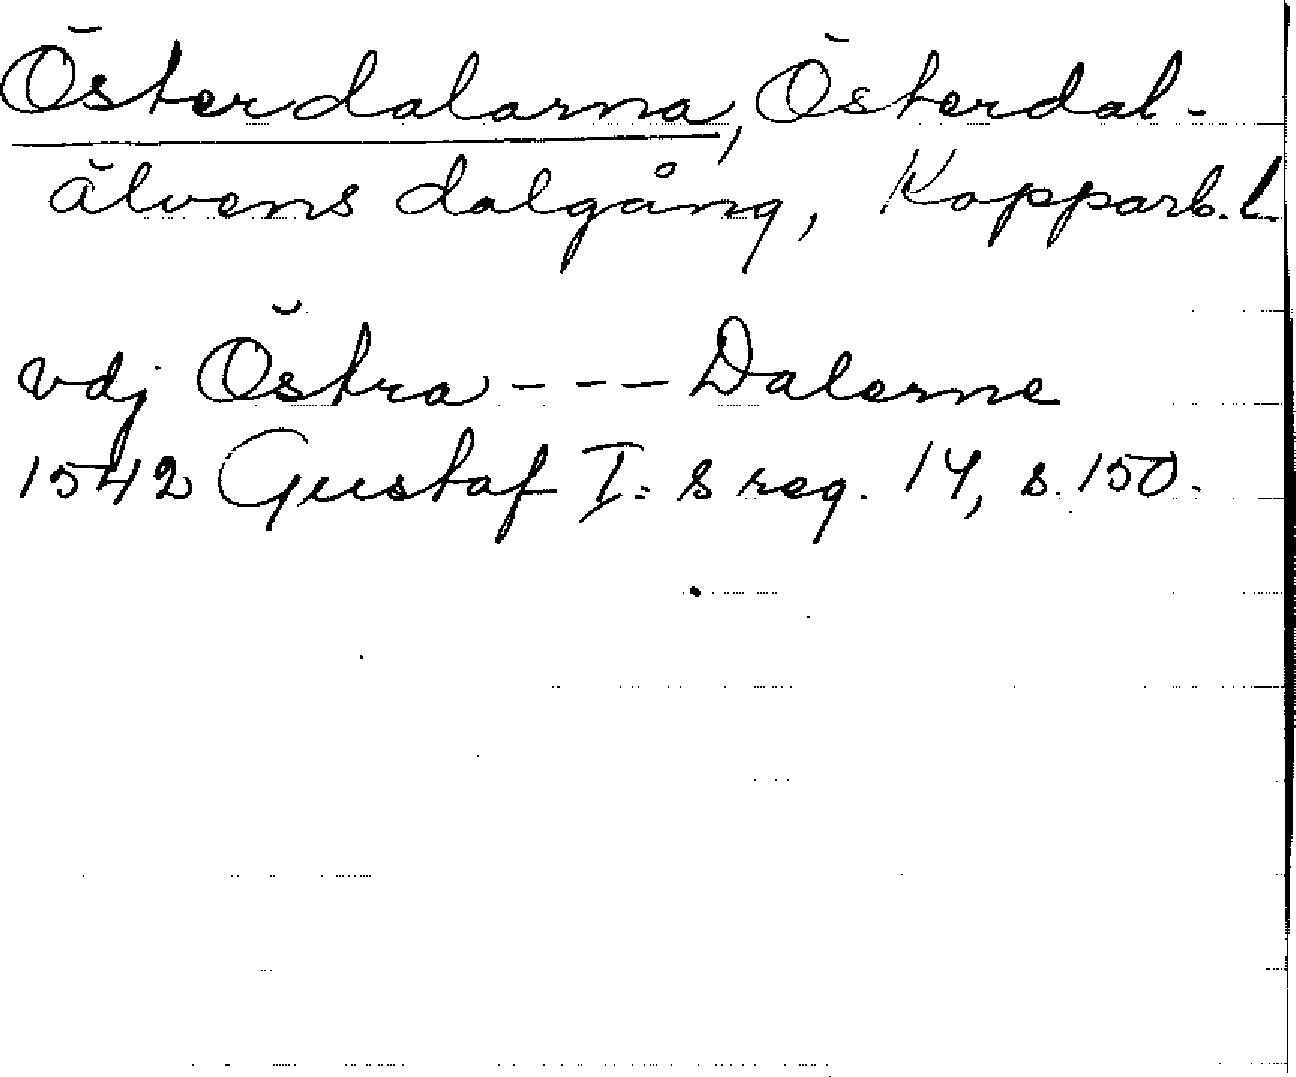 Österdalarna, Österdal-
älvens dalgång, Kopparb. l.
vdj Östra - - - Dalerne
1542 Gustaf I:s reg. 14, s. 150.